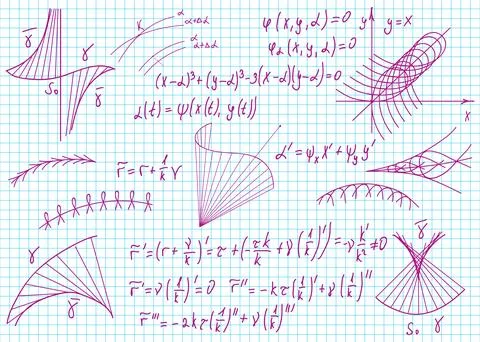 γ̃
γ
S₀
γ̃
α
α+Δα
α
α+Δα
φ(x,y,α)=0
φα(x,y,α)=0
(x-α)³+(y-α)³-3(x-α)(y-α)=0
α(t)=ψ(x(t), y(t))
y
y=x
x
r̃=r+1/k ν
α'=ψₓx'+ψᵧy'
γ
γ̃
r̃'=(r+ν/k)'=τ+(-τk/k+ν(1/k)')=-ν k'/k²≠0
r̃'=ν(1/k)'=0 r̃''=-kτ(1/k)'+ν(1/k)''
r̃'''=-2kτ(1/k)''+ν(1/k)'''
γ̃
S₀ γ